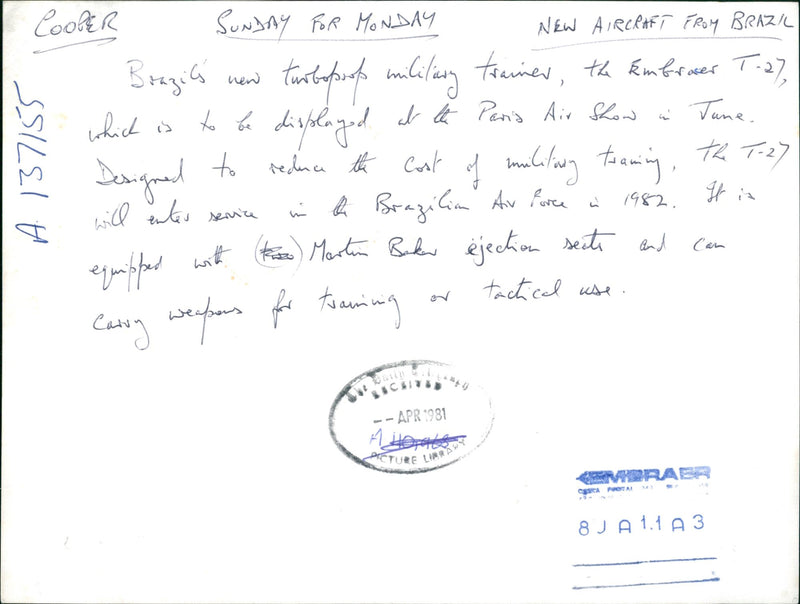 COOPER SUNDAY FOR MONDAY NEW AIRCRAFT FROM BRAZIL
Brazil's new turboprop military trainer, the Embraer T-27,
which is to be displayed at the Paris Air Show in June.
Designed to reduce the cost of military training, the T-27
will enter service in the Brazilian Air Force in 1982. It is
equipped with Martin Baker ejection seats and can
carry weapons for training or tactical use.
A 137155
The Daily Telegraph
RECEIVED
-- APR 1981
A
PICTURE LIBRARY
EMBRAER
CAIXA POSTAL
8JA1.1A3